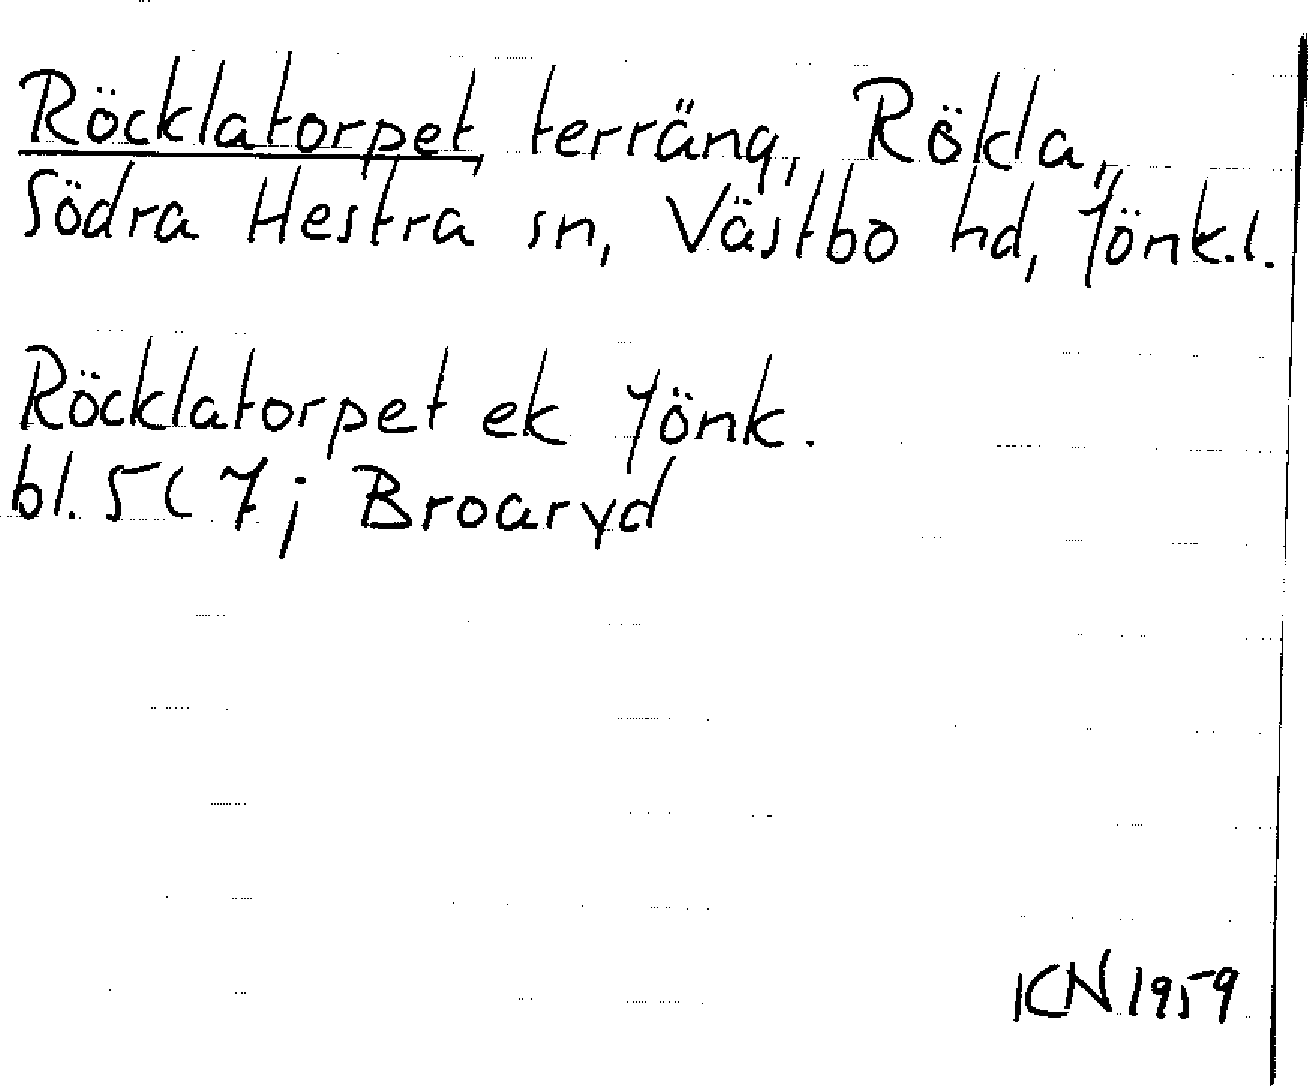 Röcklatorpet terräng, Rökla,
Södra Hestra sn, Västbo hd, Jönk.l.
Röcklatorpet ek Jönk.
bl. 5C 7j Broaryd
KN 1959